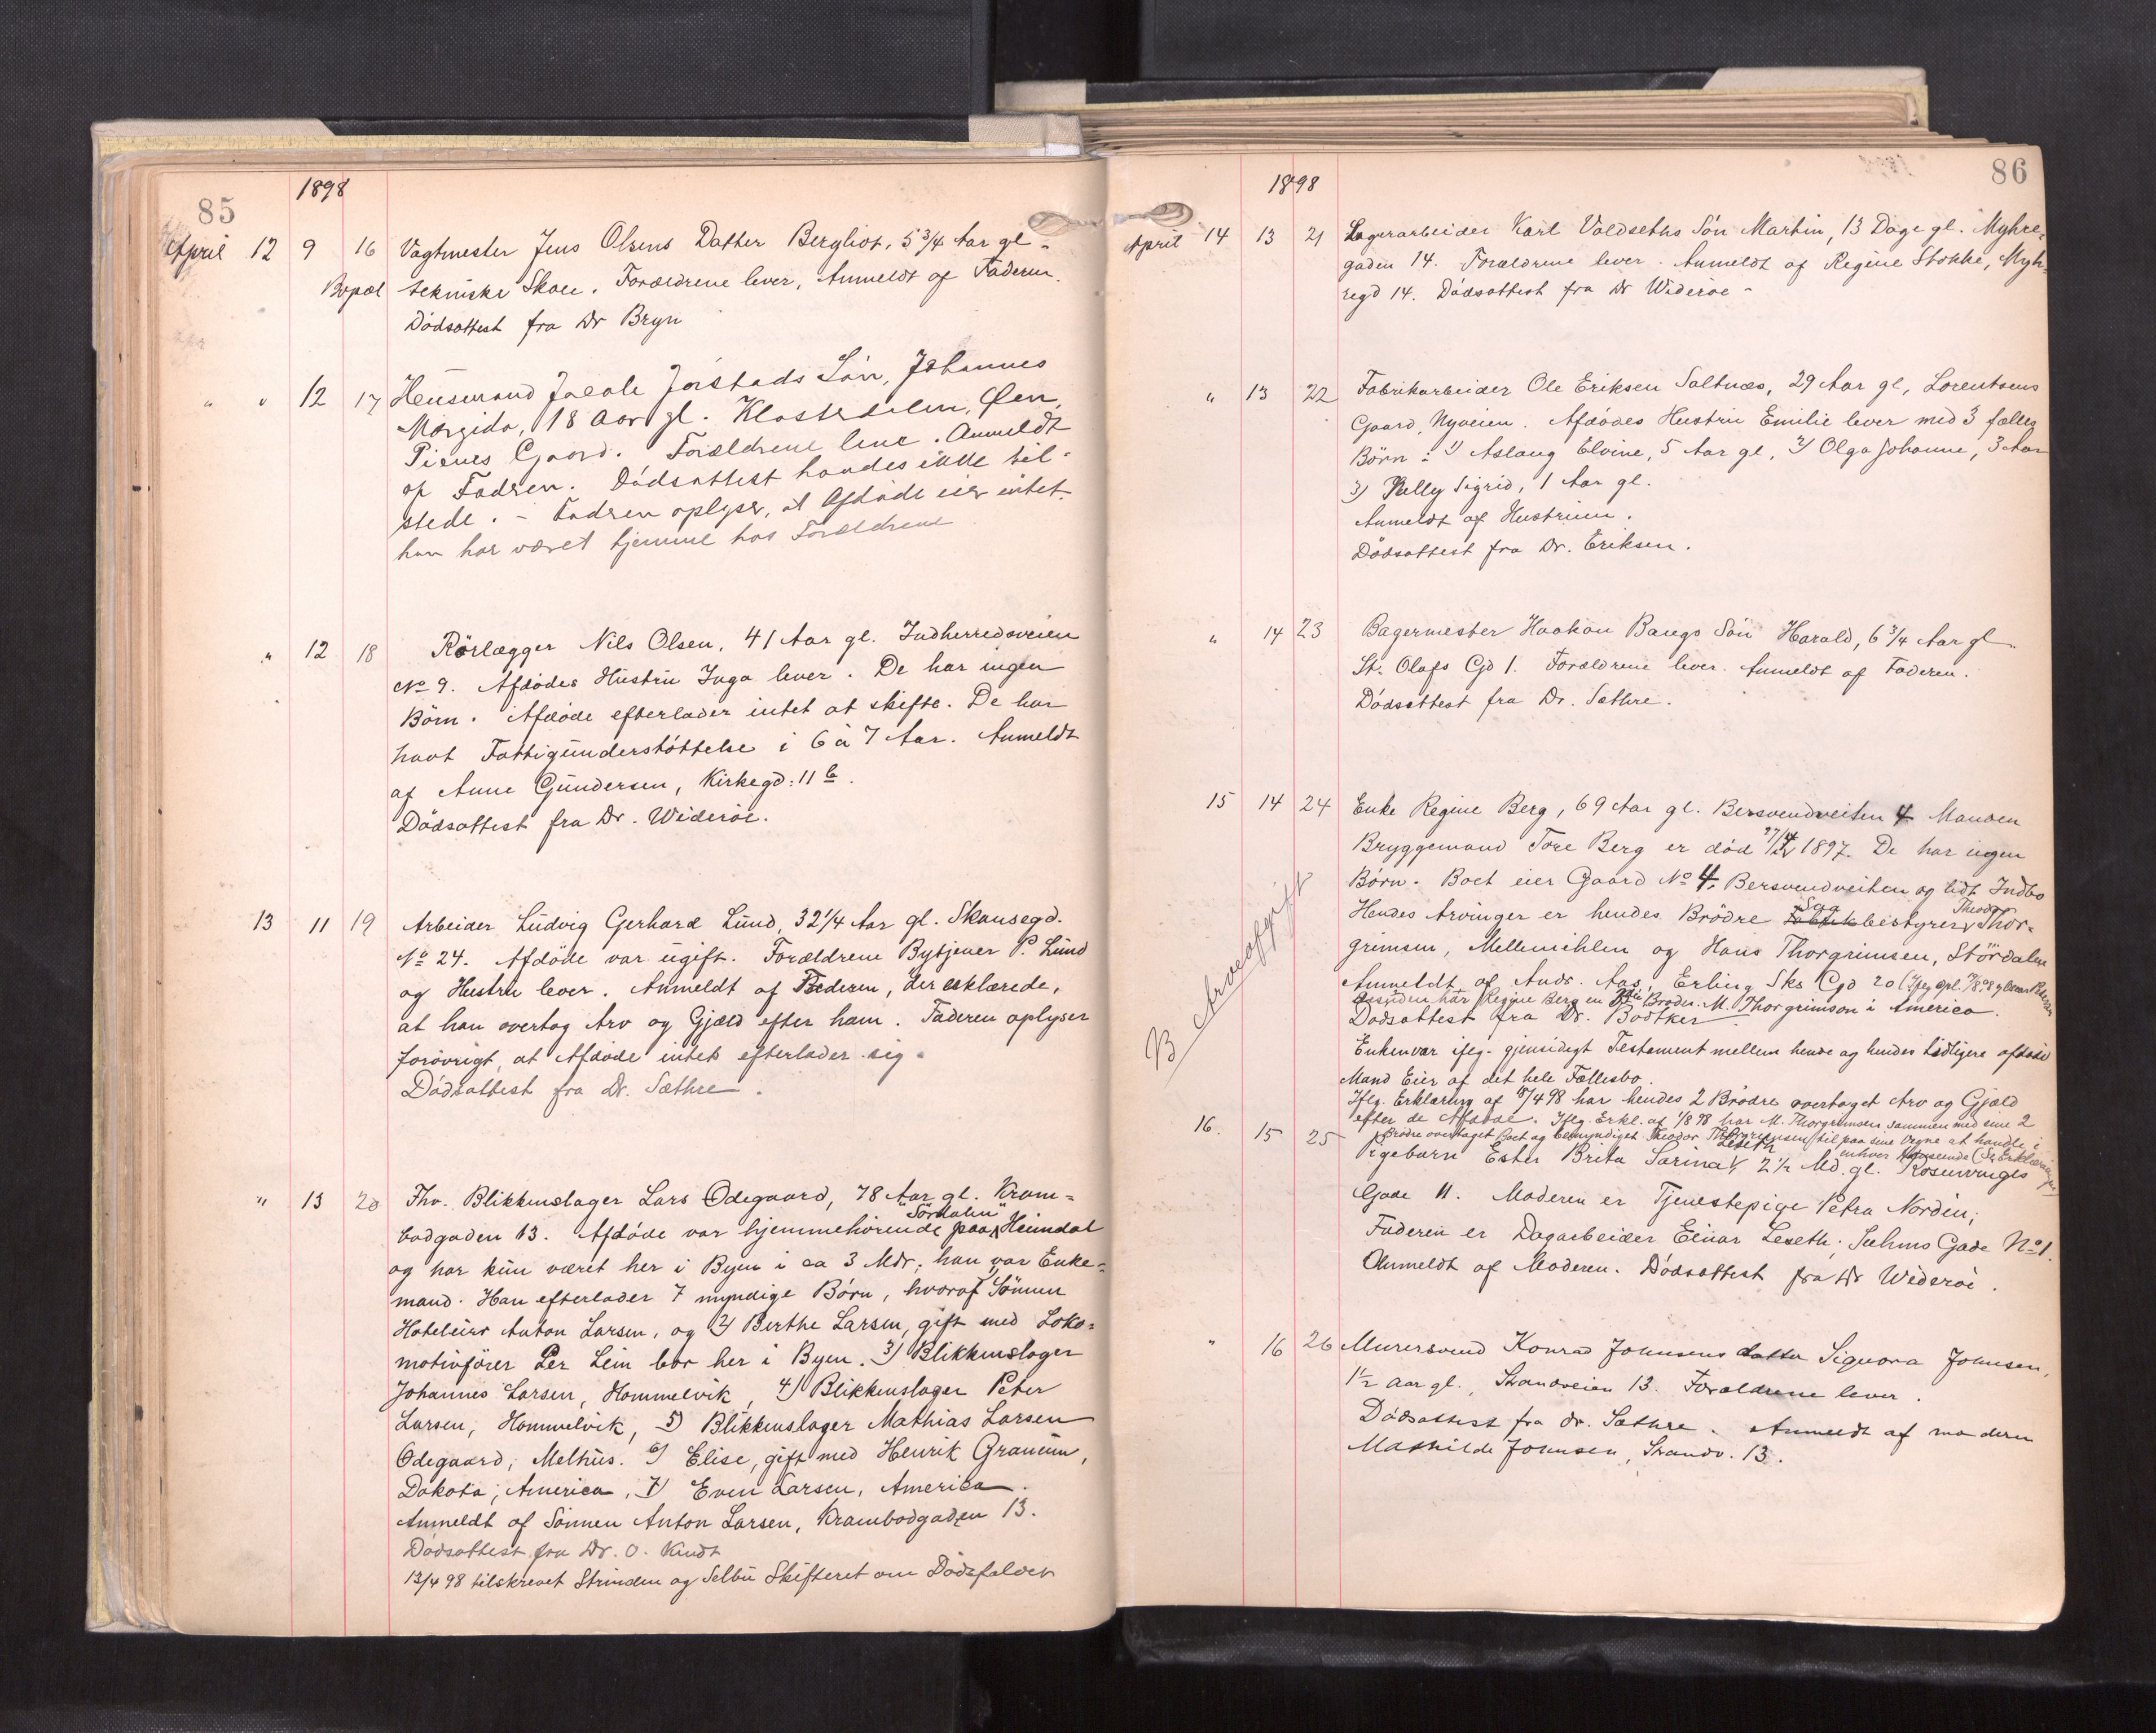 85
1898
April 12 9 16 Vagtmester Jens Olsens Datter Bergliot, 5 3/4 Aar gl -
Bopæl tekniske Skole. Forældrene lever, Anmeldt af Faderen.
Dödsattest fra Dr Bryn
" " 12 17 Husmand Jacob Jørstads Sön, Johannes
Margido, 18 Aar gl. Klosterholm, Øen,
Pienes Gaard. Forældrene leve. Anmeldt
af Fadren. Dödsattest havdes ikke til-
stede. - Fadren oplyser, at Afdöde eier intet.
han har været hjemme hos Forældrene
" 12 18 Rörlægger Nils Olsen, 41 Aar gl. Indherredsveien
No 9. Afdödes Hustru Inga lever. De har ingen
Börn. Afdöde efterlader intet at skifte. De har
havt Fattigunderstöttelse i 6 à 7 Aar. Anmeldt
af Anne Gundersen, Kirkegd: 11 b.
Dödsattest fra Dr. Wideröe.
13 11 19 Arbeider Ludvig Gerhard Lund, 32 1/4 Aar gl. Skansegd.
No 24. Afdöde var ugift. Forældrene Bytjener P. Lund
og Hustru lever. Anmeldt af Faderen, der erklærede,
at han overtog Arv og Gjæld efter ham. Faderen oplyser
forövrigt, at Afdöde intet efterlader sig.
Dödsattest fra Dr. Sæthre.
" 13 20 Fhv. Blikkenslager Lars Ödegaard, 78 Aar gl. Kram-
"Sördalen"
bodgaden 13. Afdöde var hjemmehörende paa Heimdal
og har kun været her i Byen i ca 3 Mdr; han var Enke-
mand. Han efterlader 7 myndige Börn, hvoraf Sönnen
Hoteleier Anton Larsen, og 2) Berthe Larsen, gift med Loko-
motivförer Per Lein bor her i Byen. 3) Blikkenslager
Johannes Larsen, Hommelvik, 4) Blikkenslager Peter
Larsen, Hommelvik, 5) Blikkenslager Mathias Larsen
Ödegaard, Melhus. 6) Elise, gift med Henrik Granum,
Dakota, America, 7) Even Larsen, America.
Anmeldt af Sönnen Anton Larsen, Krambodgaden 13.
Dödsattest fra Dr. O. Kindt
13/4 98 tilskrevet Strinden og Selbu Skifteret om Dödsfaldet
86
1898
April 14 13 21 Lagerarbeider Karl Valdseths Sön Martin, 13 Dage gl. Myhre-
gaden 14. Forældrene lever. Anmeldt af Regine Stokke, Myh-
regd 14. Dödsattest fra Dr Wideröe -
" 13 22 Fabrikarbeider Ole Eriksen Saltnæs, 29 Aar gl, Lorentsens
Gaard, Nyveien. Afdödes Hustru Emilie lever med 3 fælles
Börn: 1) Aslaug Elvine, 5 Aar gl, 2) Olga Johanne, 3 Aar
3) Sigrid, 1 Aar gl.
Anmeldt af Hustruen.
Dödsattest fra Dr. Eriksen.
" 14 23 Bagermester Haakon Bangs Sön Harald, 6 3/4 Aar gl
St. Olafs Gd 1. Forældrene lever. Anmeldt af Faderen.
Dödsattest fra Dr. Sæthre.
15 14 24 Enke Regine Berg, 69 Aar gl. Bersvendveiten 4 Manden
Bryggemand Tore Berg er död 1897. De har ingen
Börn. Boet eier Gaard No 4, Bersvendveiten og lidt Indbo
Sag Theodor
Hendes Arvinger er hendes Brödre Fabrikbestyrer Thor-
grimsen, Mellemihlen og Hans Thorgrimsen, Stördalen
Anmeldt af Andr. Aas, Erling Sks Gd 20
Desuden har Regine Berg en Broder M. Thorgrimson i America.
Dödsattest fra Dr. Bödtker
Enken var ifölg. gjensidigt Testament mellem hende og hendes tidligere afdöde
Mand Eier af det hele Fællesbo.
Iflg. Erklæring af 18/4 98 har hendes 2 Brödre overtaget Arv og Gjæld
efter de Afdöde. Iflg. Erkl. af 1/8 98 har M. Thorgrimsen sammen med sine 2
Brödre overtaget Boet og bemyndiget Theodor Thorgrimsen til paa sine Vegne at handle i
enhver Henseende (Se Erklæringen
B Arveafgift
Leseth
16. 15 25 Pigebarn Ester Brita Sarina 2 1/2 Md. gl. Rosenvinges
Gade 11. Moderen er Tjenestepige Petra Nordin;
Faderen er Dagarbeider Einar Leseth, Suhms Gade No 1.
Anmeldt af Moderen. Dödsattest fra Dr Wideröe.
" 16 26 Murersvend Konrad Johnsens datter Signora Johnsen,
1 1/2 Aar gl., Strandveien 13. Forældrene lever.
Dödsattest fra Dr. Sæthre. Anmeldt af moderen
Mathilde Johnsen, Strandv. 13.